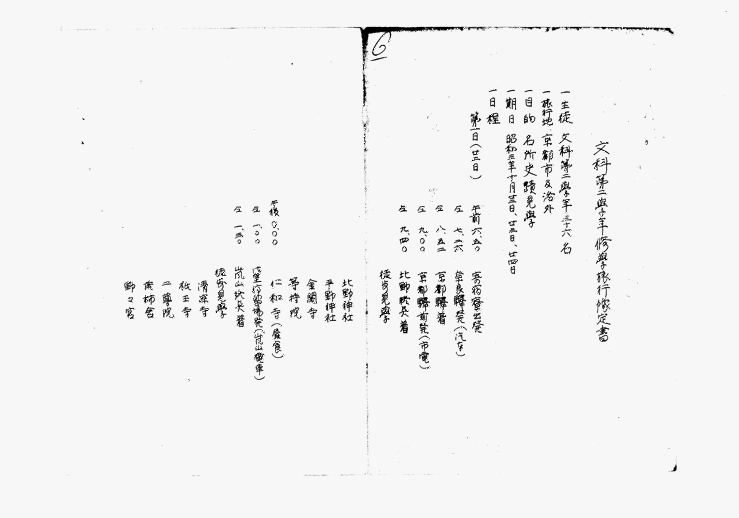 6
文科第二學年修學旅行豫定書
一 生徒 文科第二學年三十六名
一 旅行地 京都市及洛外
一 目的 名所史蹟見學
一 期日 昭和三年十月廿二日、廿三日、廿四日
一 日程
第一日(廿二日)
午前 六.五〇 寄宿寮出發
仝 七.二六 奈良驛發(汽車)
仝 八.五二 京都驛着
仝 九.〇〇 京都驛前發(市電)
仝 九.四〇 北野終点着
徒歩見學
北野神社
平野神社
金閣寺
等持院
午後 〇.〇〇 仁和寺(昼食)
仝 一.〇〇 發(嵐山電車)
仝 一.三〇 嵐山終点着
徒歩見學
清凉寺
祇王寺
二尊院
落柿舎
野々宮